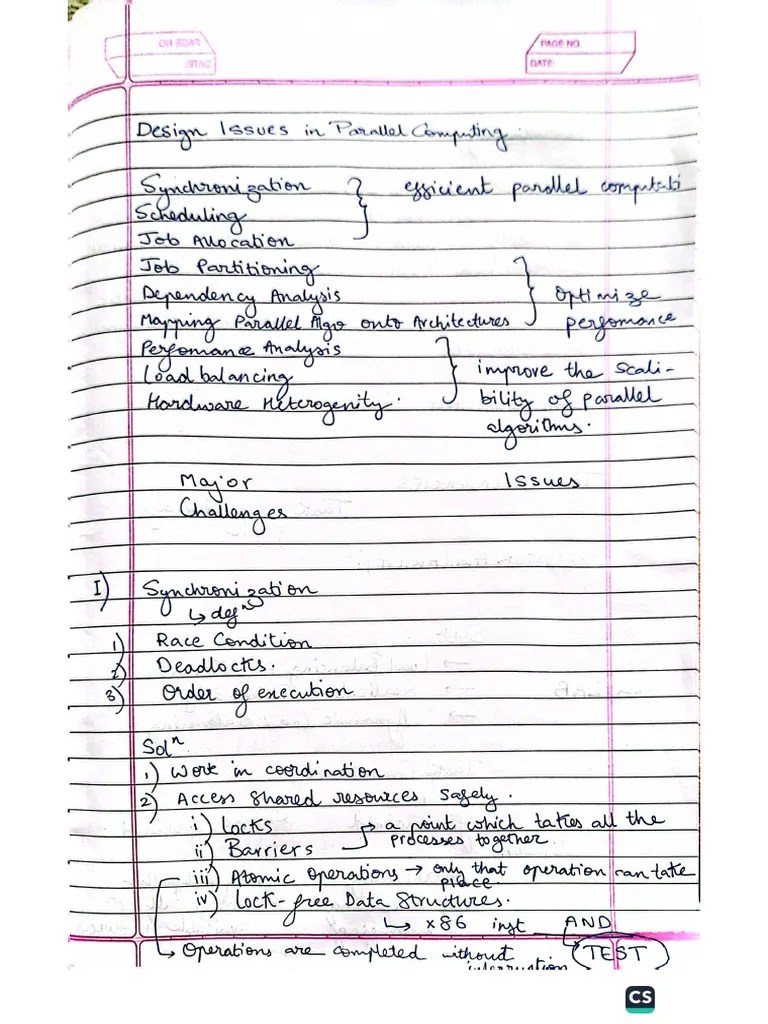 PAGE NO
DATE:
Design Issues in Parallel Computing.
Synchronization } efficient parallel computati
Scheduling
Job Allocation
Job Partitioning
Dependency Analysis } Optimize
Mapping Parallel Algo onto Architectures perfomance
Perfomance Analysis
Load balancing } improve the Scali-
Hardware Heterogenity. bility of parallel
algorithms.
Major Issues
Challenges
I) Synchronization
↳ defⁿ
1) Race Condition
2) Deadlocks.
3) Order of execution
Solⁿ
1) Work in coordination
2) Access Shared resources safely.
i) Locks → a point which takes all the
ii) Barriers processes together.
iii) Atomic Operations → only that operation can take
place.
iv) Lock-free Data Structures.
↳ x86 inst AND
↳ Operations are completed without TEST
interruption
CS